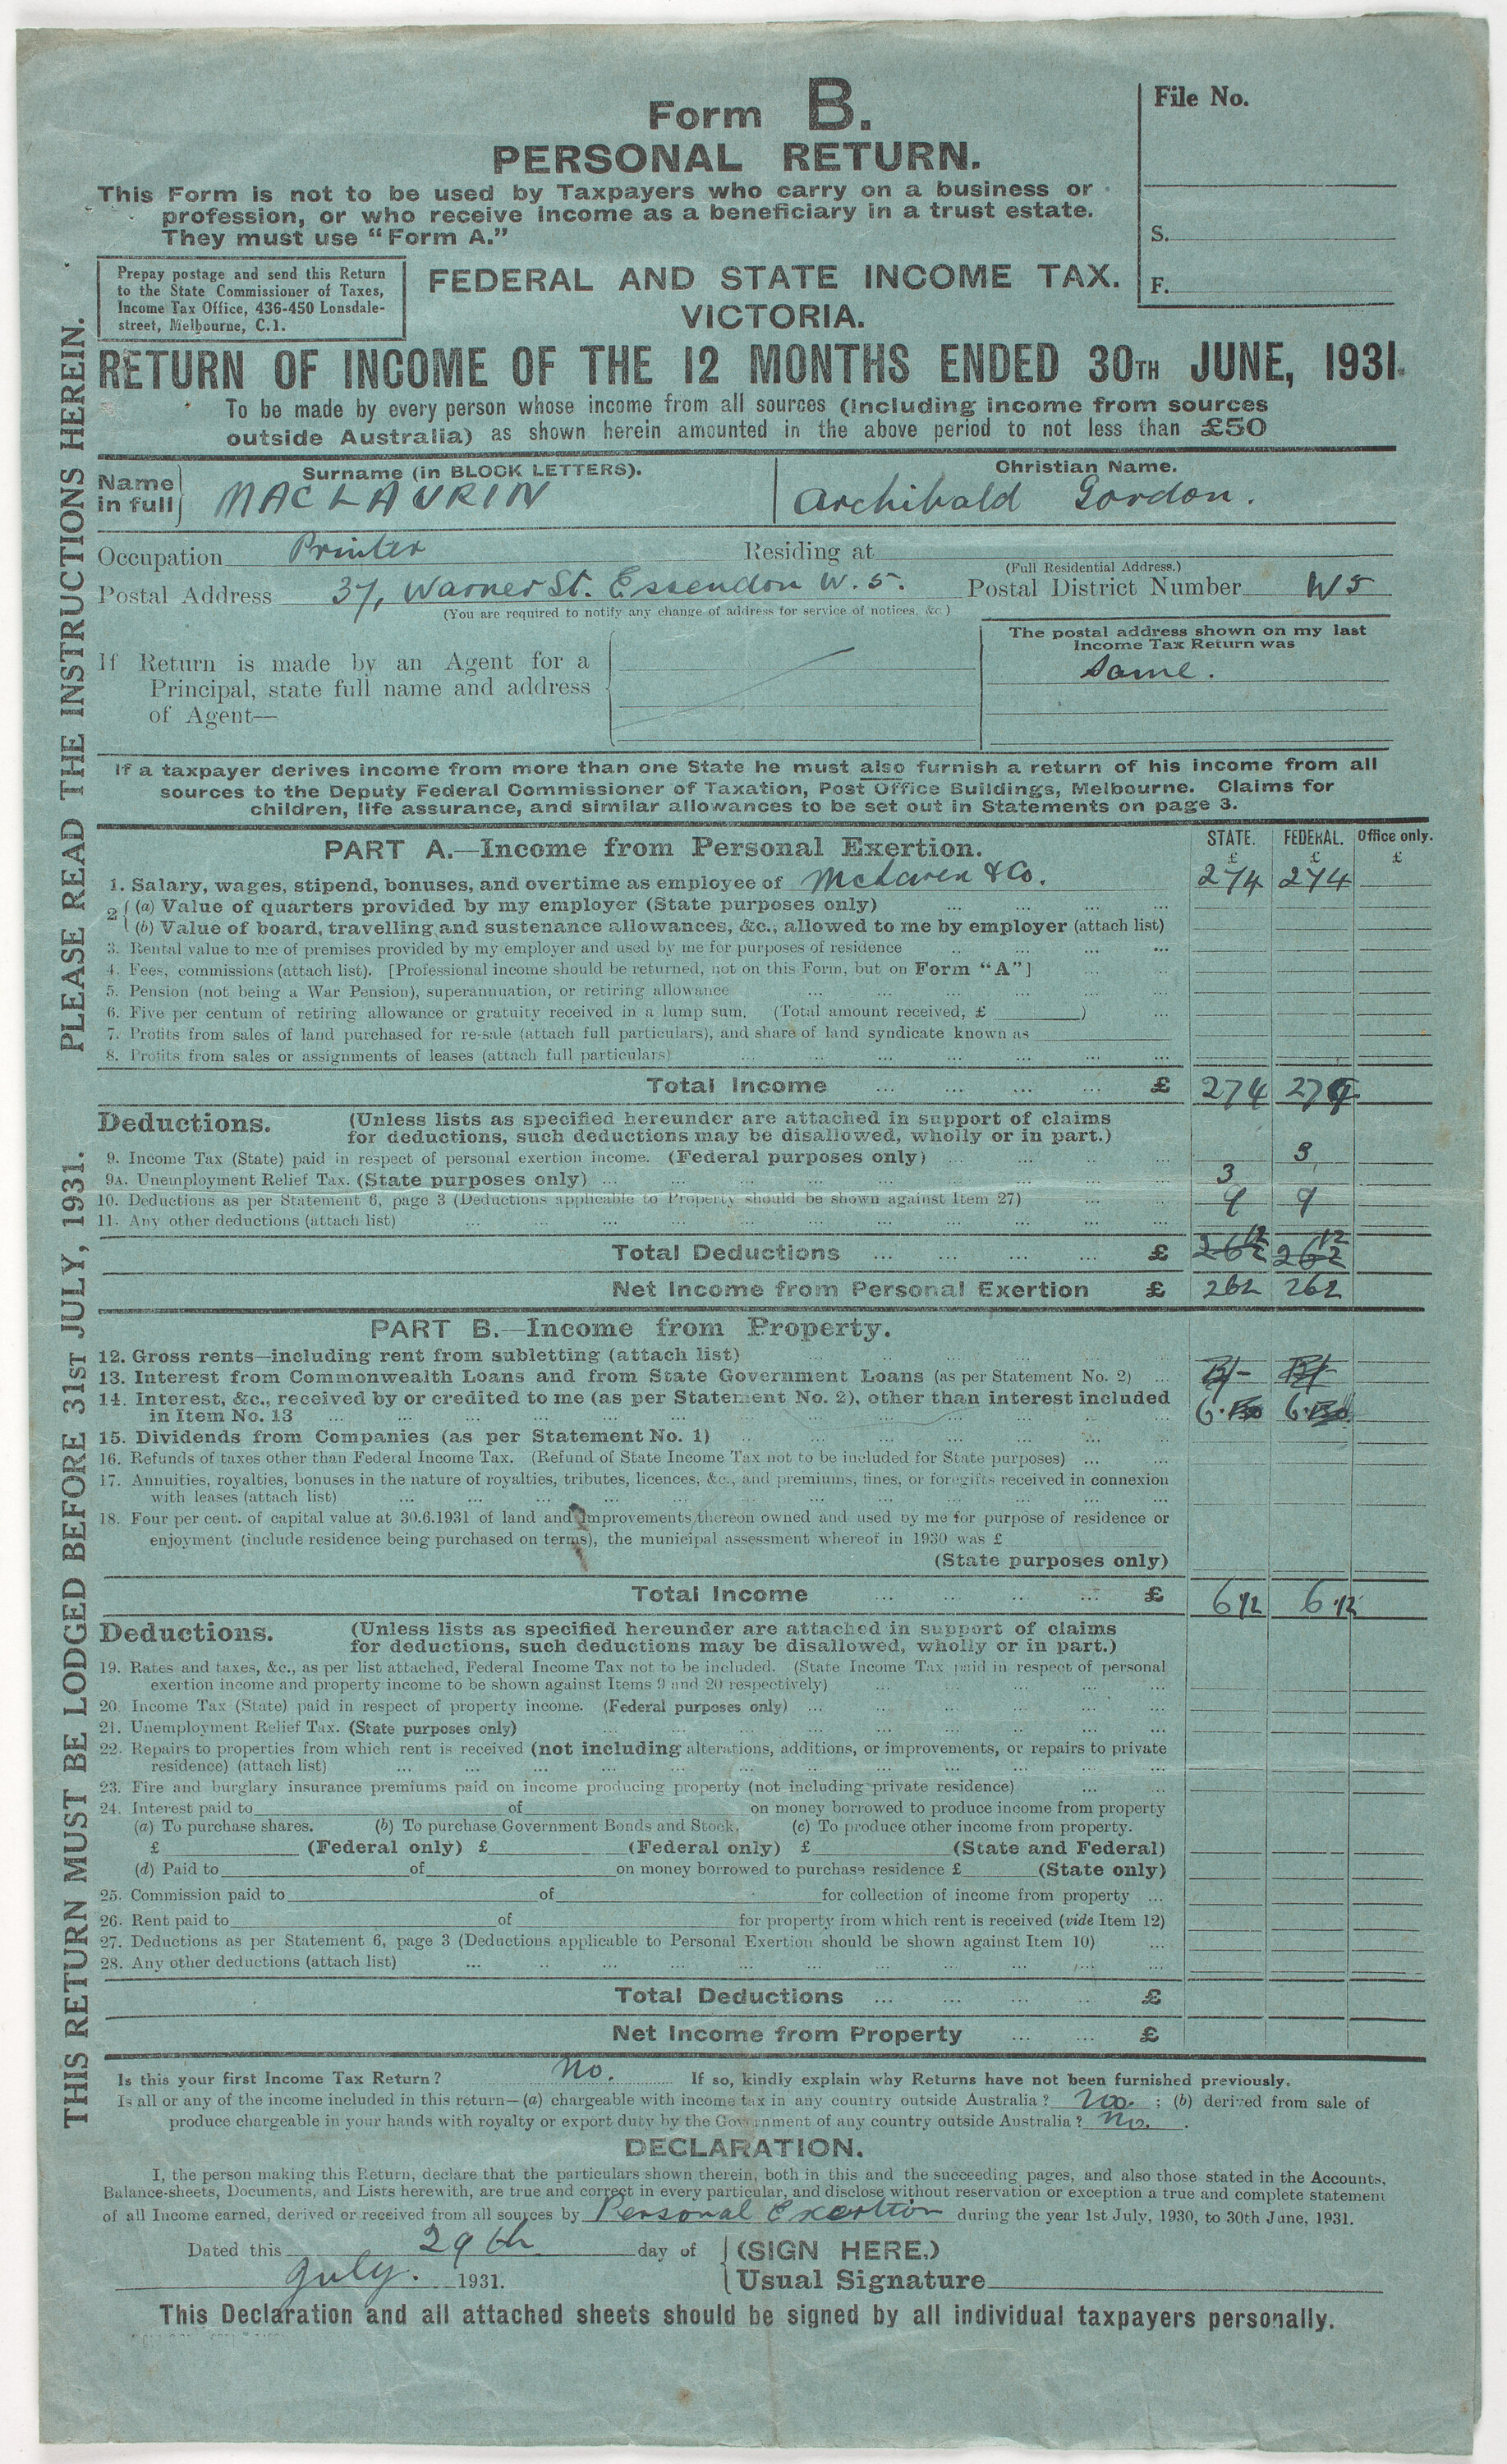 Form B.
File No.
PERSONAL RETURN.
This Form is not to be used by Taxpayers who carry on a business or
profession, or who receive income as a beneficiary in a trust estate.
They must use "Form A."
S.
F.
Prepay postage and send this Return
to the State Commissioner of Taxes,
Income Tax Office, 436-450 Lonsdale-
street, Melbourne, C.1.
FEDERAL AND STATE INCOME TAX.
VICTORIA.
RETURN OF INCOME OF THE 12 MONTHS ENDED 30TH JUNE, 1931.
To be made by every person whose income from all sources (including income from sources
outside Australia) as shown herein amounted in the above period to not less than £50
PLEASE READ THE INSTRUCTIONS HEREIN.
THIS RETURN MUST BE LODGED BEFORE 31ST JULY, 1931.
Name in full
Surname (in BLOCK LETTERS).
MACLAURIN
Christian Name.
Archibald Gordon.
Occupation Printer Residing at
(Full Residential Address.)
Postal Address 37, Warner St. Essendon W.5. Postal District Number W5
(You are required to notify any change of address for service of notices, &c.)
If Return is made by an Agent for a
Principal, state full name and address
of Agent—
The postal address shown on my last
Income Tax Return was
Same.
If a taxpayer derives income from more than one State he must also furnish a return of his income from all
sources to the Deputy Federal Commissioner of Taxation, Post Office Buildings, Melbourne. Claims for
children, life assurance, and similar allowances to be set out in Statements on page 3.
PART A.—Income from Personal Exertion.
STATE. FEDERAL. Office only.
£ £ £
1. Salary, wages, stipend, bonuses, and overtime as employee of McLaren & Co. 274 274
2 (a) Value of quarters provided by my employer (State purposes only)
(b) Value of board, travelling and sustenance allowances, &c., allowed to me by employer (attach list)
3. Rental value to me of premises provided by my employer and used by me for purposes of residence
4. Fees, commissions (attach list). [Professional income should be returned, not on this Form, but on Form "A"]
5. Pension (not being a War Pension), superannuation, or retiring allowance
6. Five per centum of retiring allowance or gratuity received in a lump sum. (Total amount received, £ )
7. Profits from sales of land purchased for re-sale (attach full particulars), and share of land syndicate known as
8. Profits from sales or assignments of leases (attach full particulars)
Total Income £ 274 274
Deductions. (Unless lists as specified hereunder are attached in support of claims
for deductions, such deductions may be disallowed, wholly or in part.)
9. Income Tax (State) paid in respect of personal exertion income. (Federal purposes only) 3
9A. Unemployment Relief Tax. (State purposes only) 3
10. Deductions as per Statement 6, page 3 (Deductions applicable to Property should be shown against Item 27) 9 9
11. Any other deductions (attach list)
Total Deductions £ 262 12 262 12
Net Income from Personal Exertion £ 262 262
PART B.—Income from Property.
12. Gross rents—including rent from subletting (attach list)
13. Interest from Commonwealth Loans and from State Government Loans (as per Statement No. 2)
14. Interest, &c., received by or credited to me (as per Statement No. 2), other than interest included
in Item No. 13 6 6
15. Dividends from Companies (as per Statement No. 1)
16. Refunds of taxes other than Federal Income Tax. (Refund of State Income Tax not to be included for State purposes)
17. Annuities, royalties, bonuses in the nature of royalties, tributes, licences, &c., and premiums, fines, or foregifts received in connexion
with leases (attach list)
18. Four per cent. of capital value at 30.6.1931 of land and improvements thereon owned and used by me for purpose of residence or
enjoyment (include residence being purchased on terms), the municipal assessment whereof in 1930 was £
(State purposes only)
Total Income £ 6 12 6 12
Deductions. (Unless lists as specified hereunder are attached in support of claims
for deductions, such deductions may be disallowed, wholly or in part.)
19. Rates and taxes, &c., as per list attached, Federal Income Tax not to be included. (State Income Tax paid in respect of personal
exertion income and property income to be shown against Items 9 and 20 respectively)
20. Income Tax (State) paid in respect of property income. (Federal purposes only)
21. Unemployment Relief Tax. (State purposes only)
22. Repairs to properties from which rent is received (not including alterations, additions, or improvements, or repairs to private
residence) (attach list)
23. Fire and burglary insurance premiums paid on income producing property (not including private residence)
24. Interest paid to of on money borrowed to produce income from property
(a) To purchase shares. (b) To purchase Government Bonds and Stock. (c) To produce other income from property.
£ (Federal only) £ (Federal only) £ (State and Federal)
(d) Paid to of on money borrowed to purchase residence £ (State only)
25. Commission paid to of for collection of income from property
26. Rent paid to of for property from which rent is received (vide Item 12)
27. Deductions as per Statement 6, page 3 (Deductions applicable to Personal Exertion should be shown against Item 10)
28. Any other deductions (attach list)
Total Deductions £
Net Income from Property £
Is this your first Income Tax Return? No. If so, kindly explain why Returns have not been furnished previously.
Is all or any of the income included in this return—(a) chargeable with income tax in any country outside Australia? No. ; (b) derived from sale of
produce chargeable in your hands with royalty or export duty by the Government of any country outside Australia? No. .
DECLARATION.
I, the person making this Return, declare that the particulars shown therein, both in this and the succeeding pages, and also those stated in the Accounts,
Balance-sheets, Documents, and Lists herewith, are true and correct in every particular, and disclose without reservation or exception a true and complete statement
of all Income earned, derived or received from all sources by Personal Exertion during the year 1st July, 1930, to 30th June, 1931.
Dated this 29th day of
July. 1931.
(SIGN HERE.)
Usual Signature
This Declaration and all attached sheets should be signed by all individual taxpayers personally.